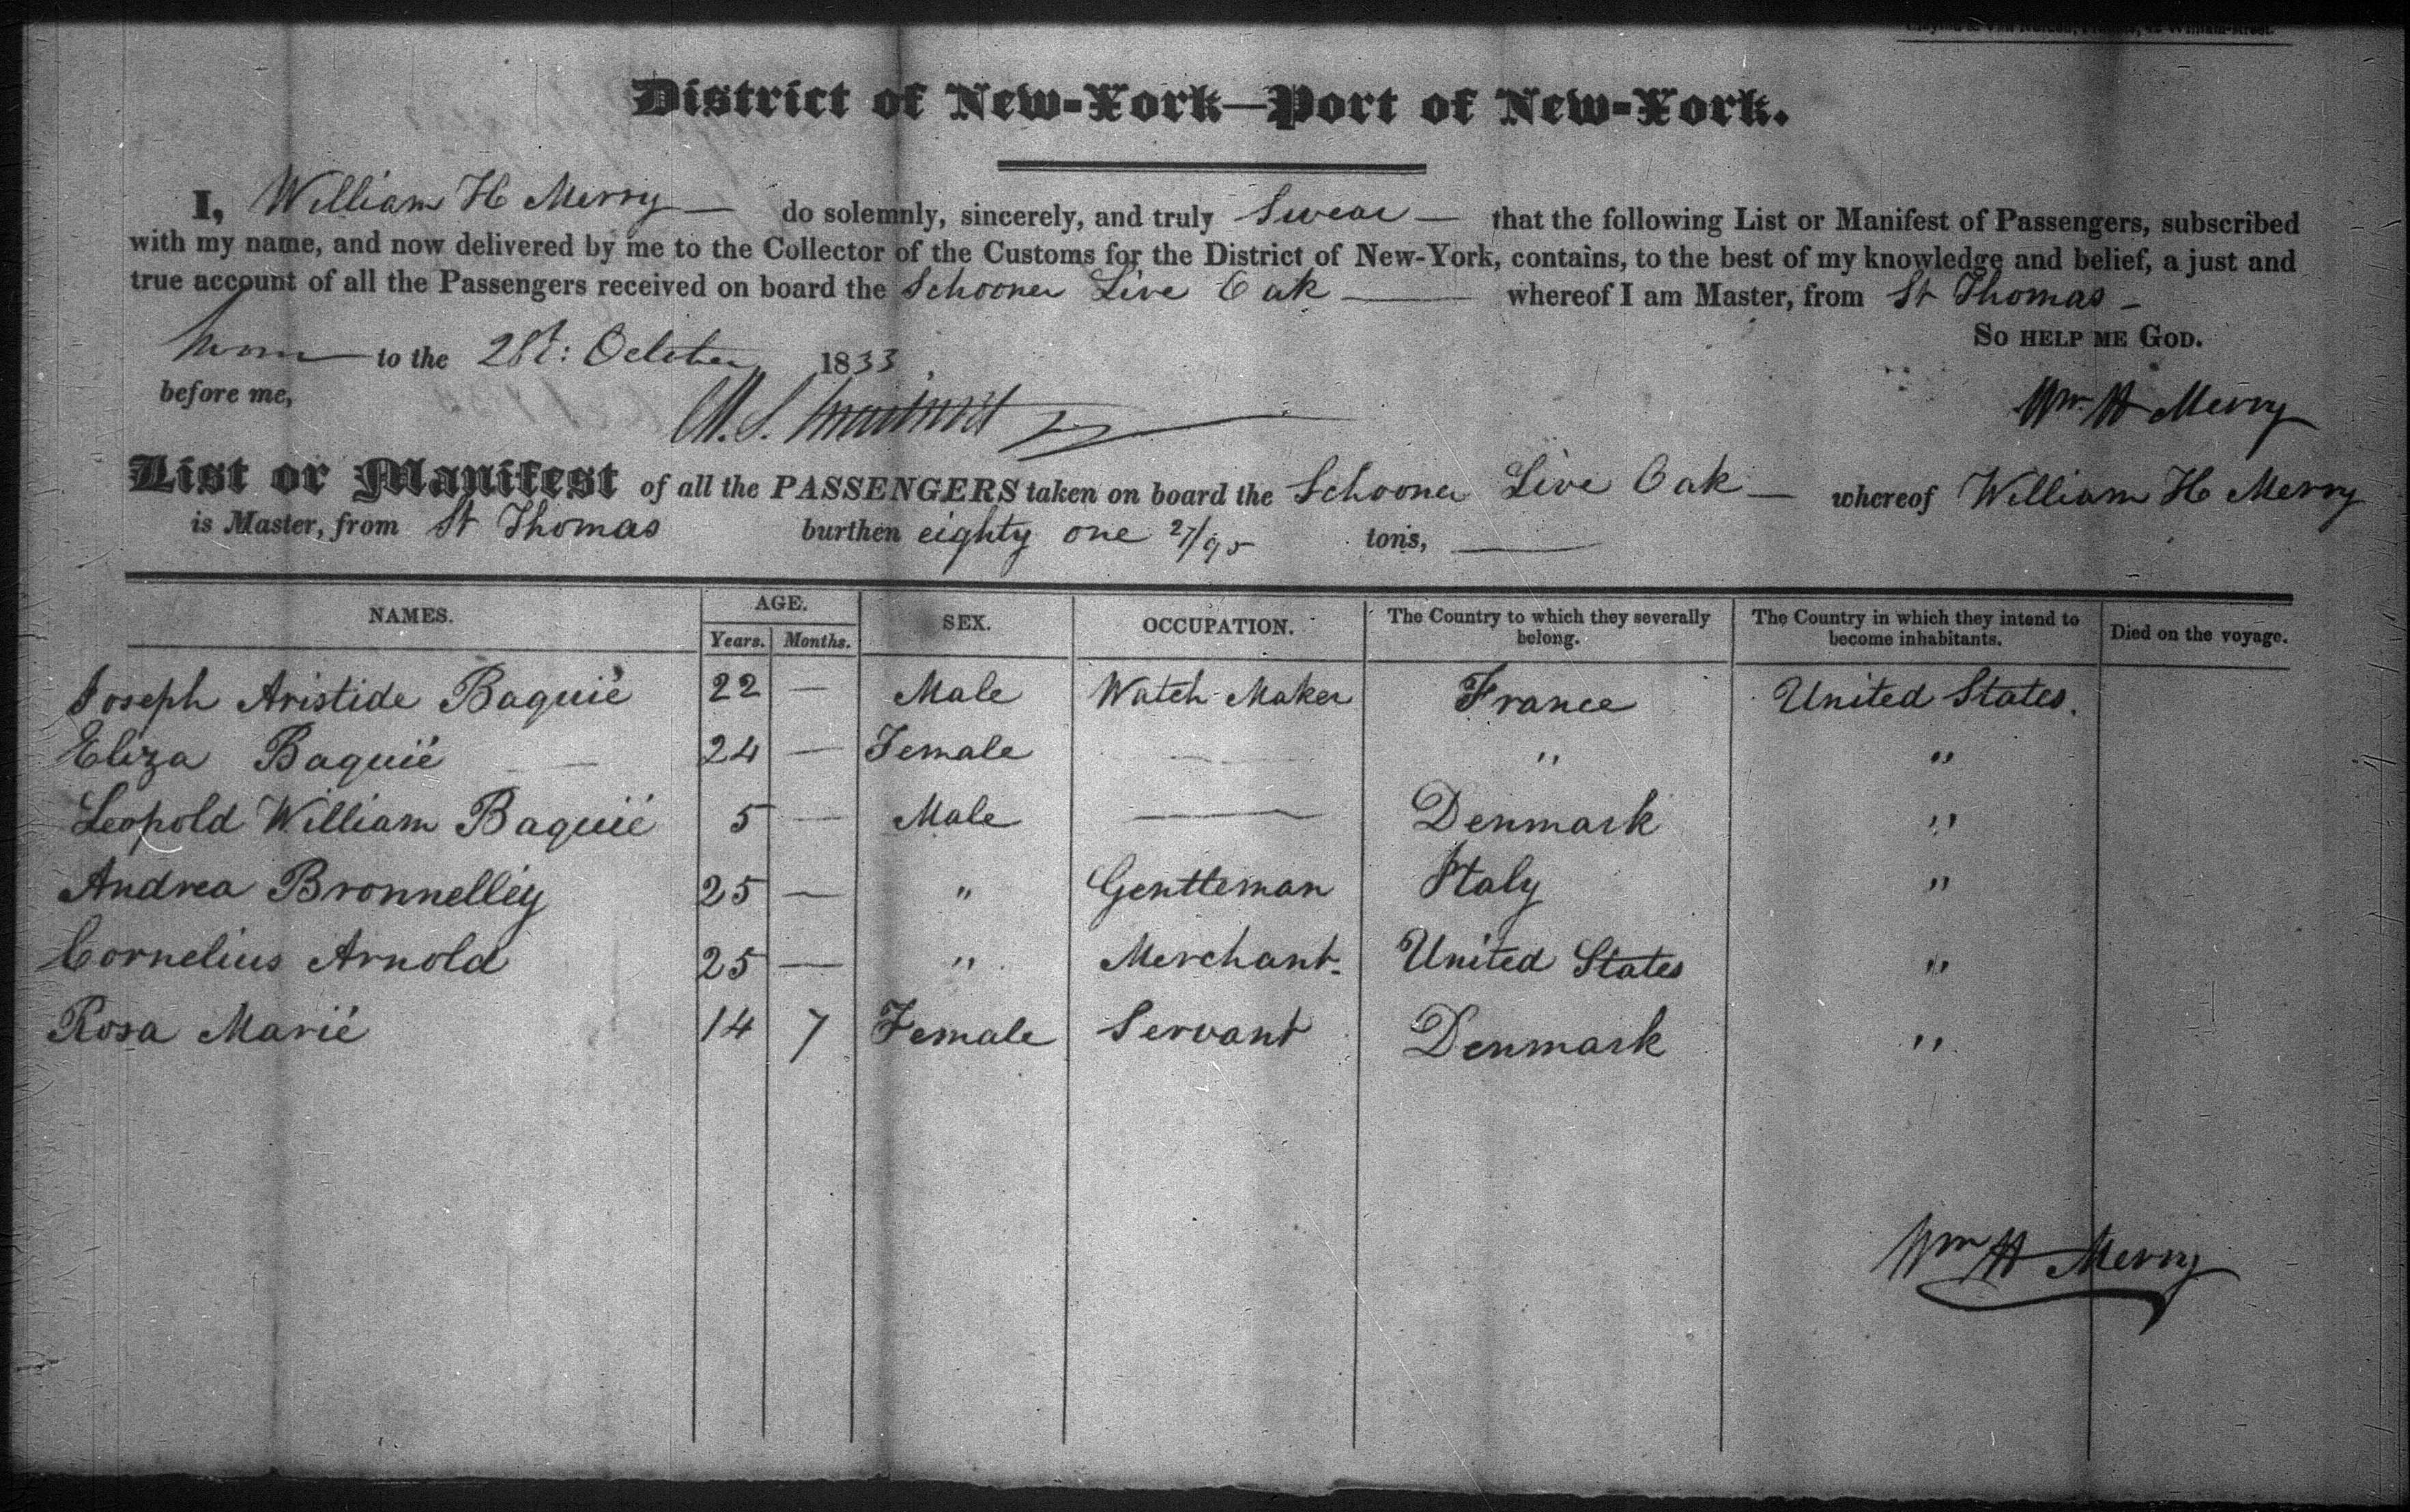 William-street.
District of New-York—Port of New-York.
I, William H Merry — do solemnly, sincerely, and truly Swear — that the following List or Manifest of Passengers, subscribed
with my name, and now delivered by me to the Collector of the Customs for the District of New-York, contains, to the best of my knowledge and belief, a just and
true account of all the Passengers received on board the Schooner Live Oak — whereof I am Master, from St Thomas —
So help me God.
to the 28t: October 1833
before me,
Wm H Merry
List or Manifest of all the PASSENGERS taken on board the Schooner Live Oak — whereof William H Merry
is Master, from St Thomas burthen eighty one 27/95 tons, —
NAMES. AGE. SEX. OCCUPATION. The Country to which they severally belong. The Country in which they intend to become inhabitants. Died on the voyage.
Years. Months.
Joseph Aristide Baquié 22 — Male Watch Maker France United States.
Eliza Baquié 24 — Female — " "
Leopold William Baquié 5 — Male — Denmark "
Andrea Bronnelley 25 — " Gentleman Italy "
Cornelius Arnold 25 — " Merchant. United States "
Rosa Marié 14 7 Female Servant Denmark "
Wm H Merry